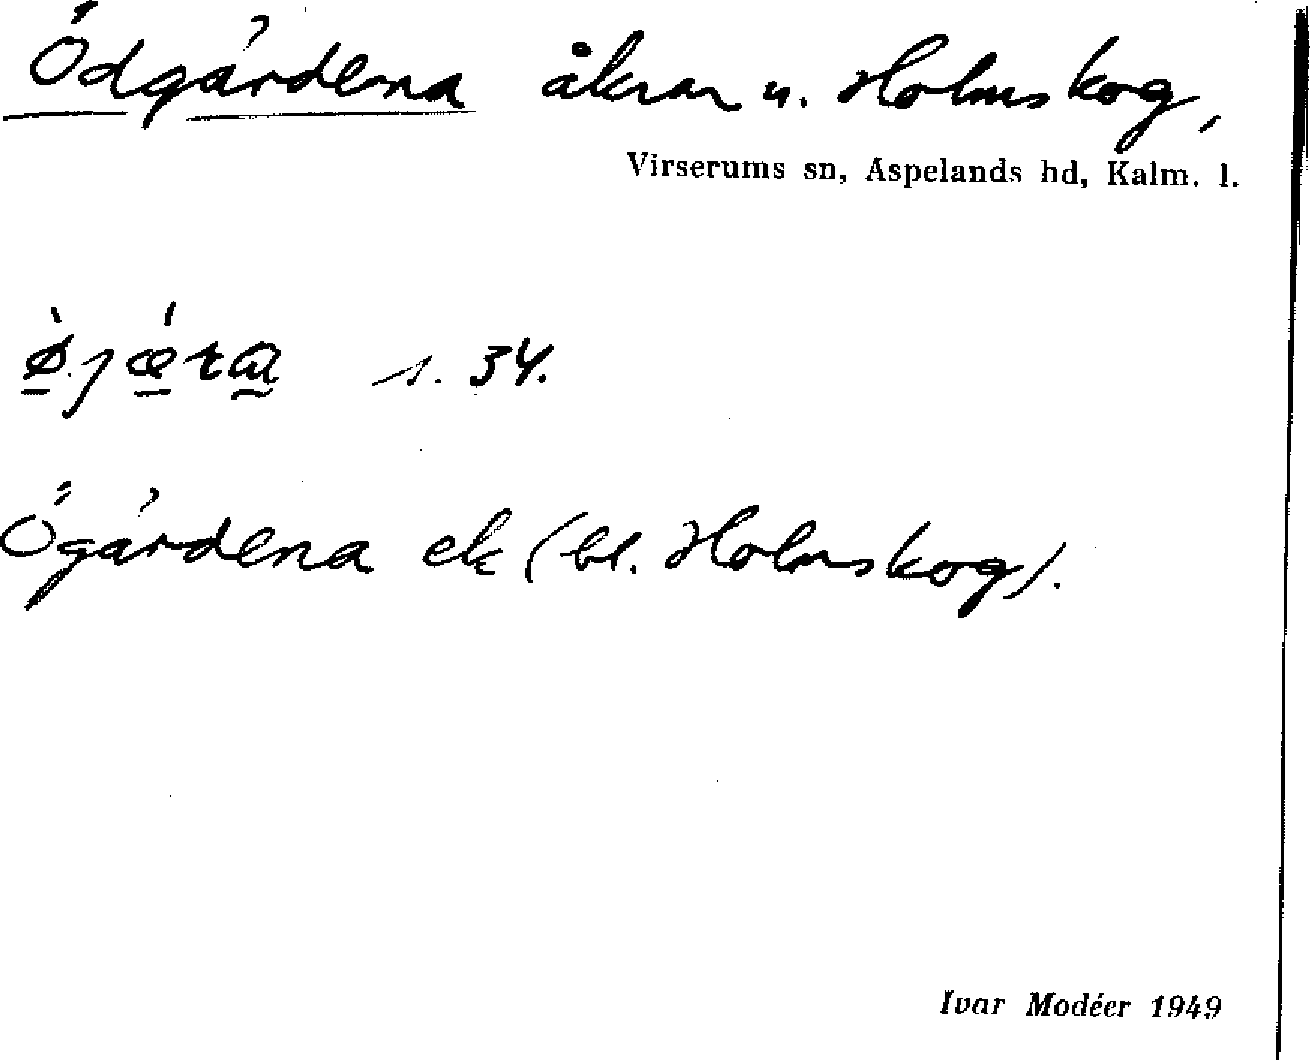 Ödgårdena åkrar u. Holmskog,
Virserums sn, Aspelands hd, Kalm. l.
s. 34.
Ögårdena ek (bl. Holmskog).
Ivar Modéer 1949